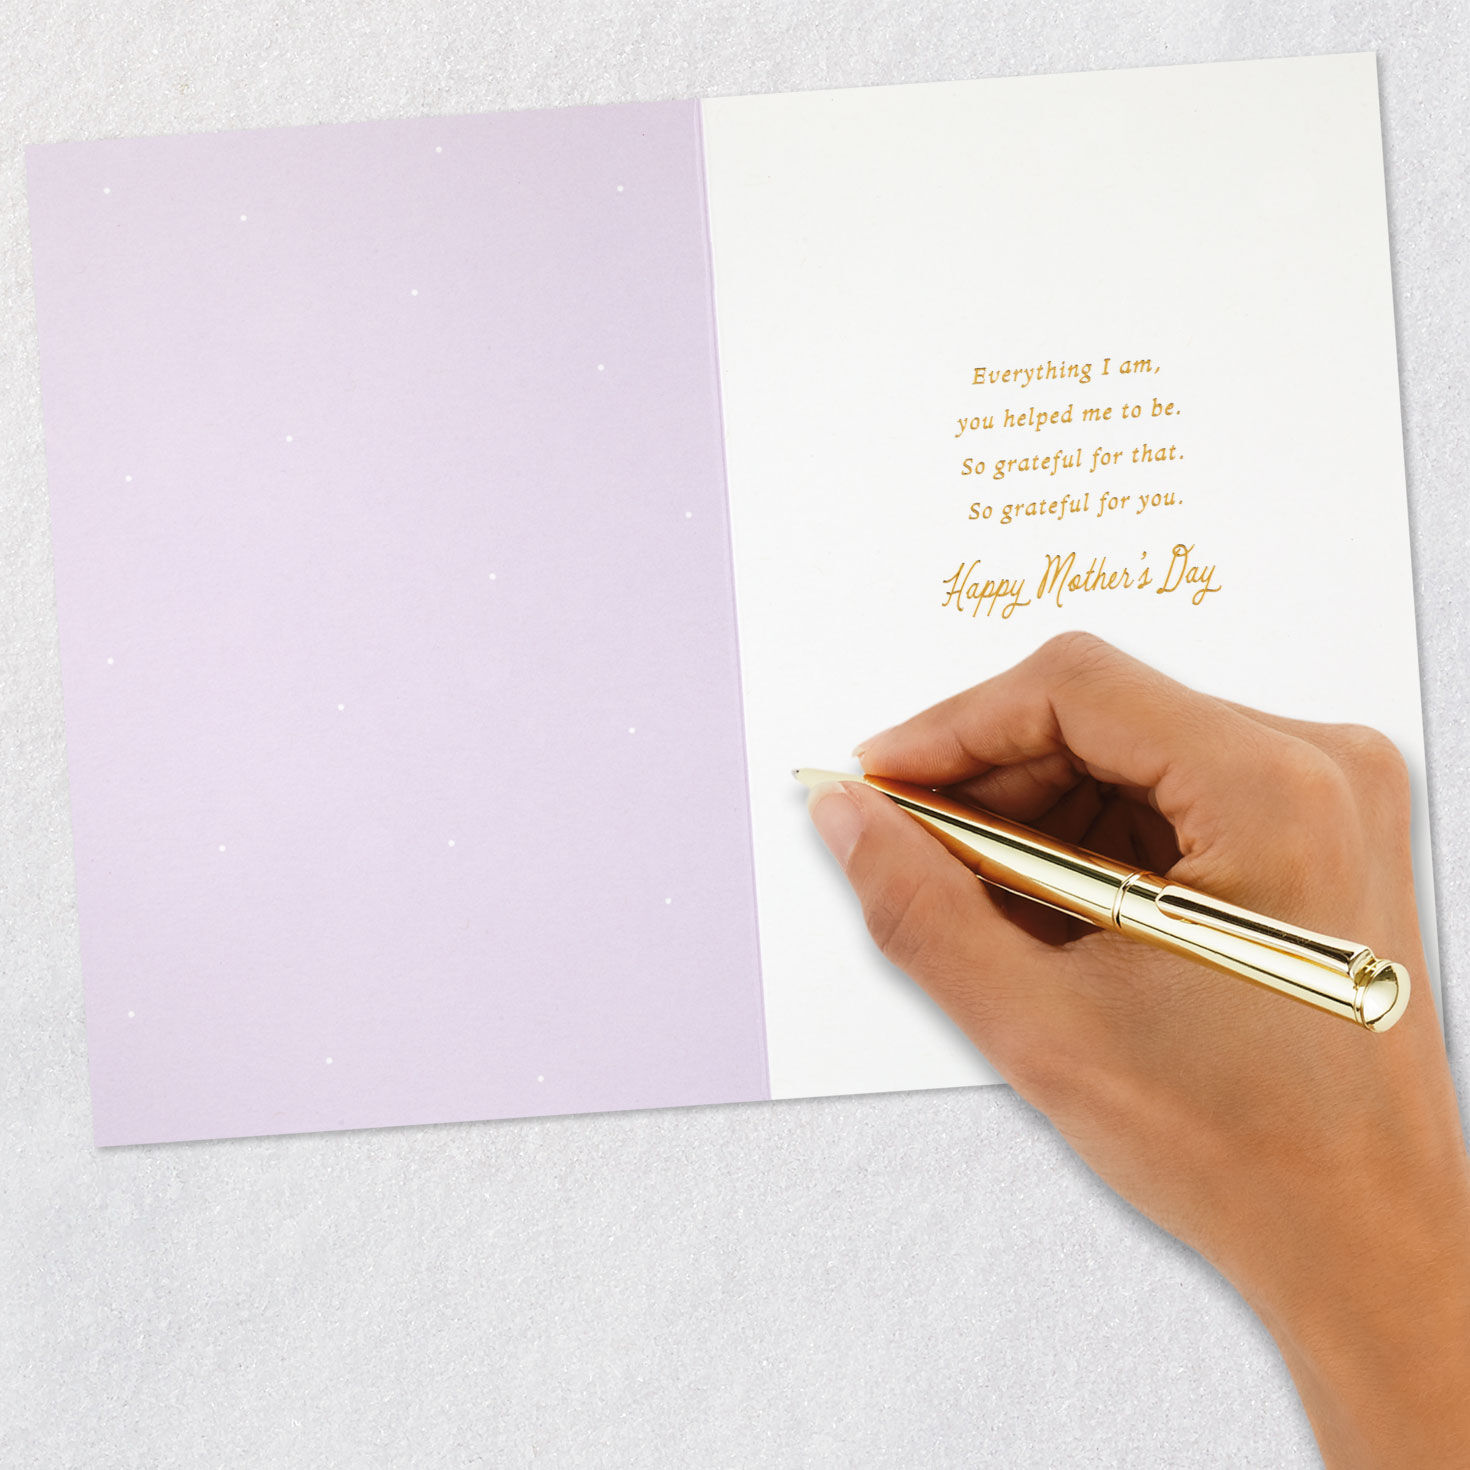 Everything I am,
you helped me to be.
So grateful for that.
So grateful for you.
Happy Mother's Day